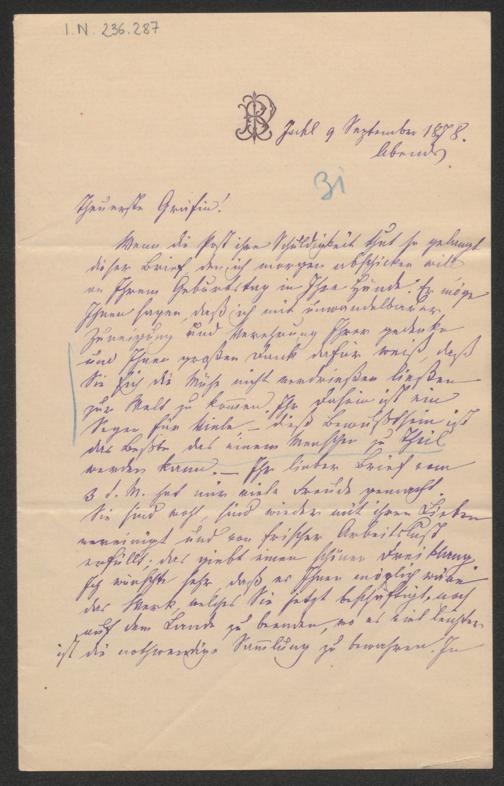 I.N. 236.287
Ischl 9 September 1878.
Abends
31
Theuerste Gräfin!
Wenn die Post ihre Schuldigkeit thut so gelangt
dieser Brief den ich morgen abschicken will
an Ihrem Geburtstag in Ihre Hände. Er möge
Ihnen sagen, daß ich mit unwandelbarer
Zuneigung und Verehrung Ihrer gedenke
und Ihnen großen Dank dafür weiß, daß
Sie sich die Mühe nicht verdrießen ließen
zur Welt zu kommen. Ihr Dasein ist ein
Segen für Viele – dieß Bewußtsein ist
das Beßte das einem Menschen zu Theil
werden kann. – Ihr lieber Brief vom
3 d. M. hat mir viele Freude gemacht
Sie sind wohl, sind wieder mit Ihren Lieben
vereinigt und von frischer Arbeitslust
erfüllt; das giebt einen schönen Dreiklang.
Ich wünschte sehr daß es Ihnen möglich wäre
das Werk welches Sie jetzt beschäftigt, noch
auf dem Lande zu beenden, wo es viel leichter
ist die nothwendige Sammlung zu bewahren. In